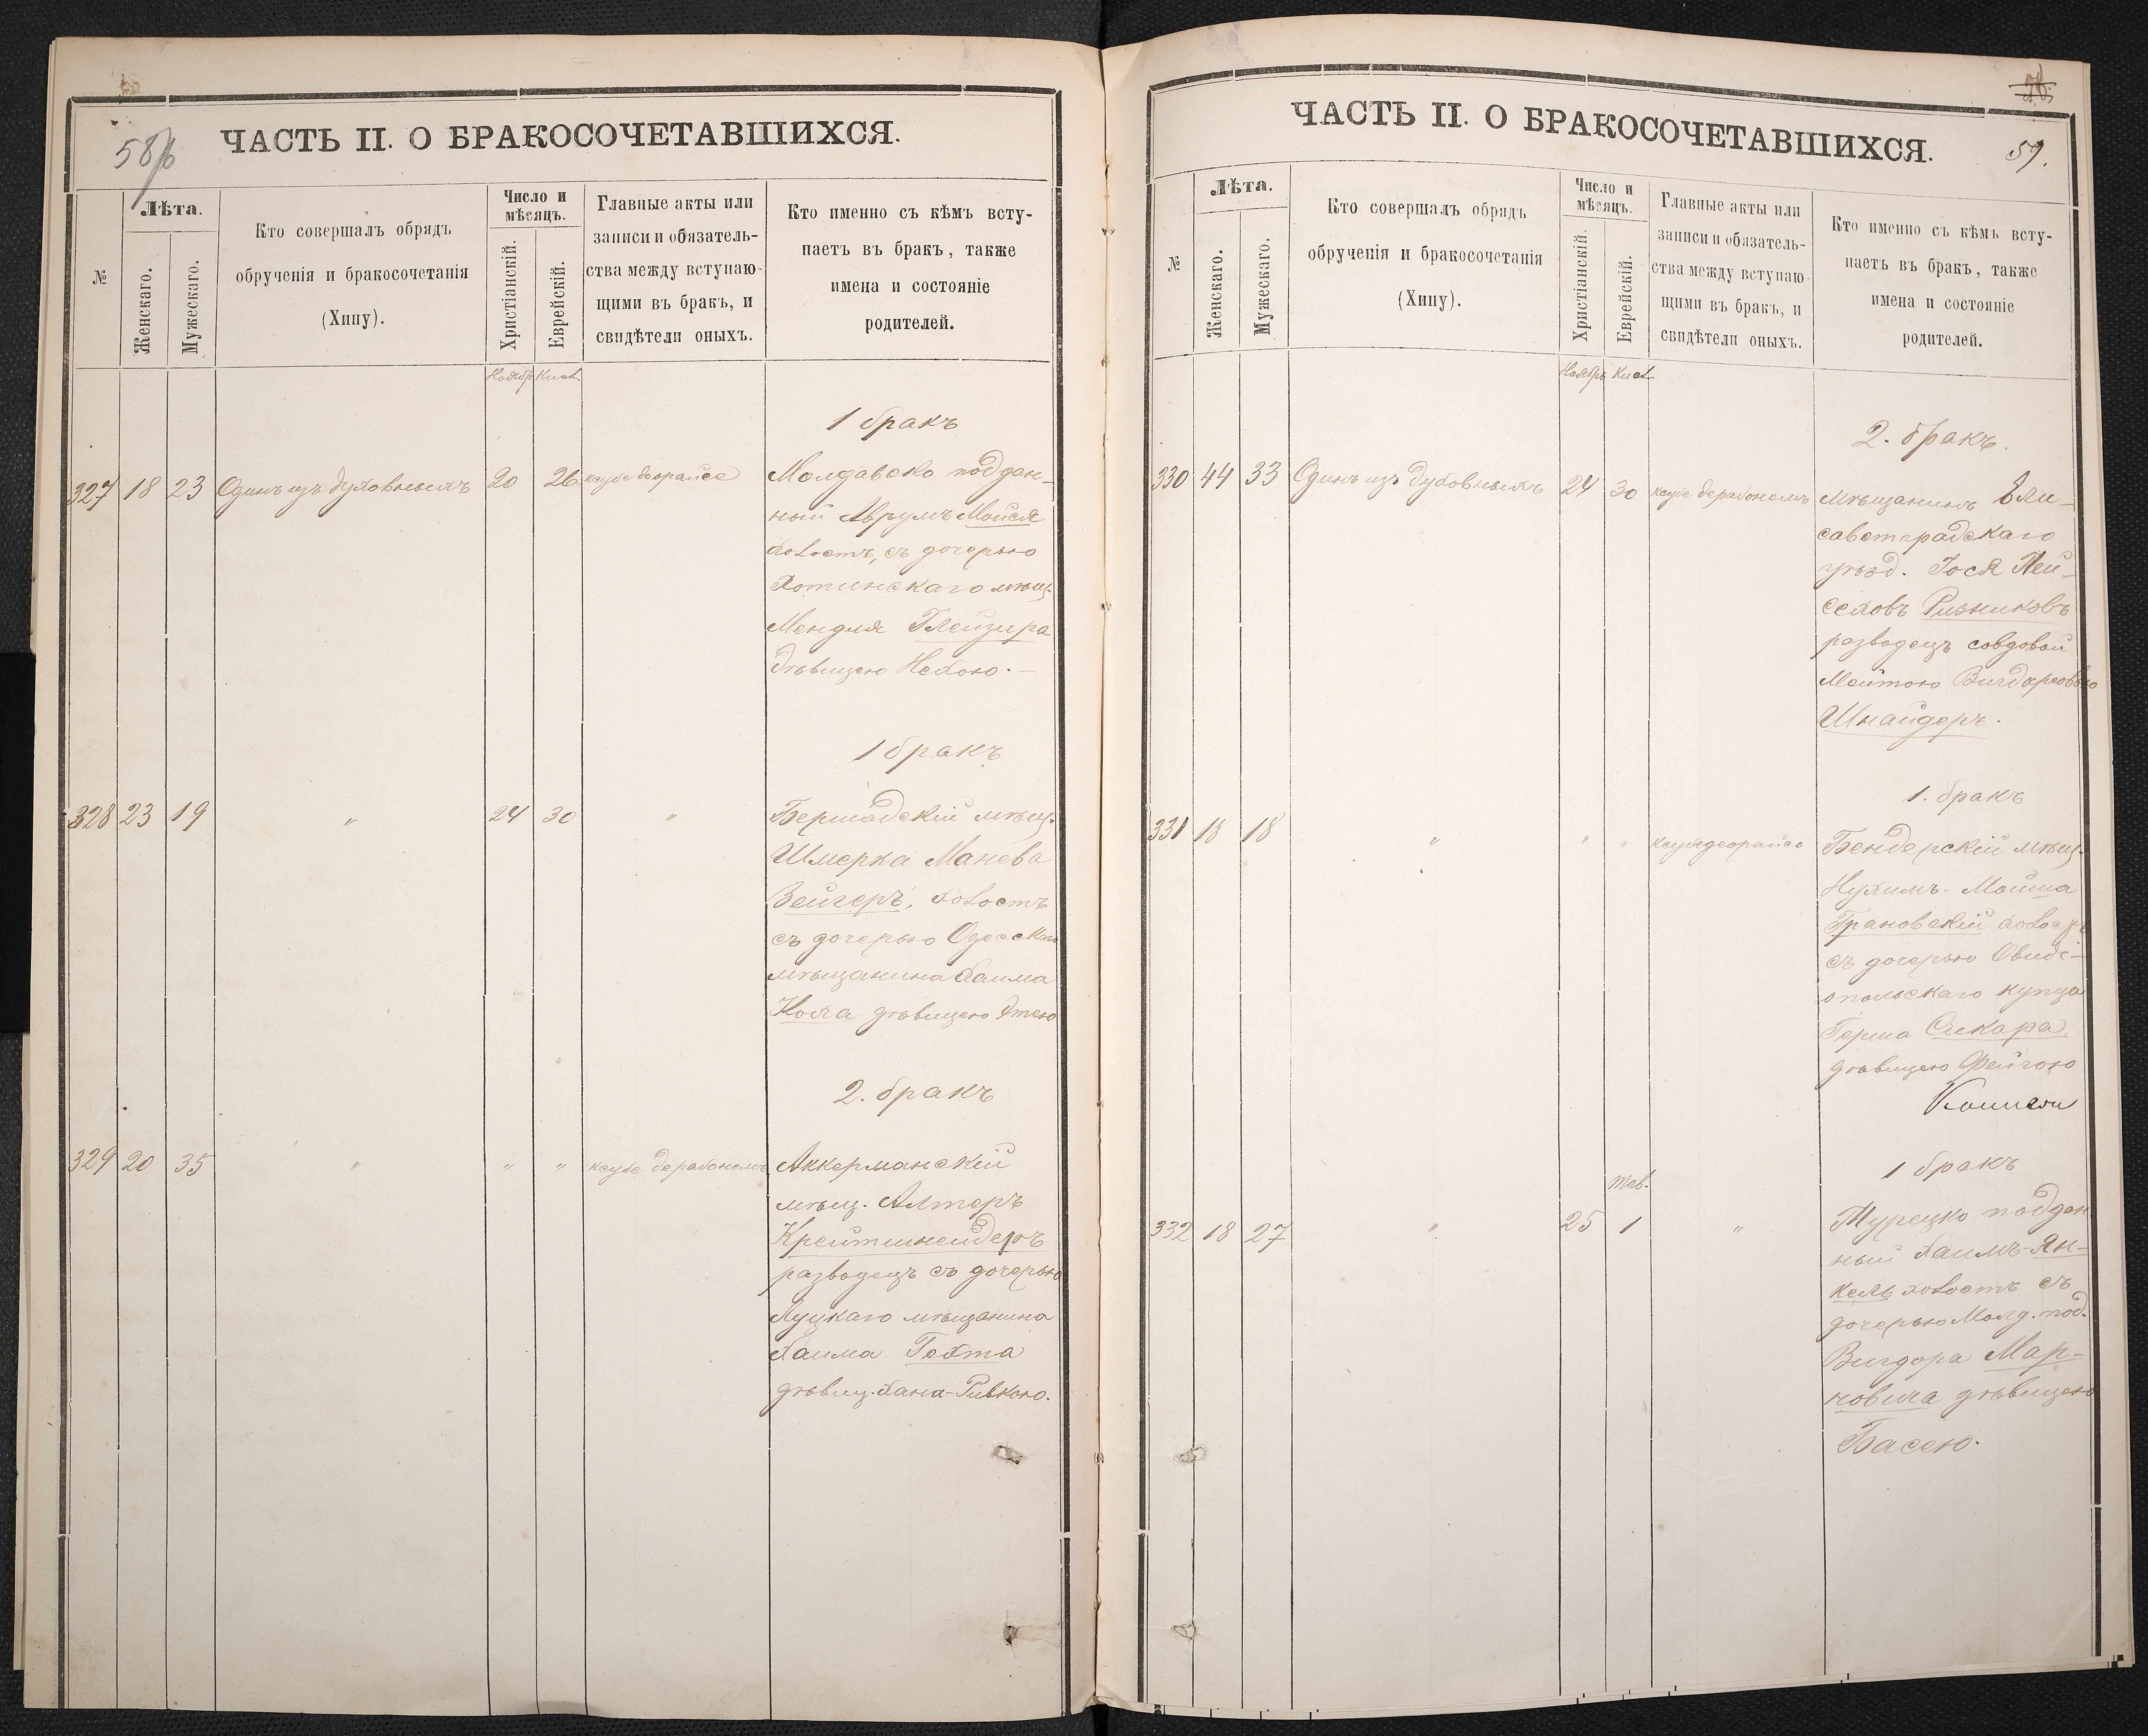 58/б
ЧАСТЬ II. О БРАКОСОЧЕТАВШИХСЯ.
№
Лѣта.
Женскаго.
Мужескаго.
Кто совершалъ обрядъ
обрученія и бракосочетанія
(Хипу).
Число и
мѣсяцъ.
Христіанскій.
Еврейскій.
Главные акты или
записи и обязатель-
ства между вступаю-
щими въ бракъ, и
свидѣтели оныхъ.
Кто именно съ кѣмъ всту-
паетъ въ бракъ, также
имена и состояніе
родителей.
Ноябр. Кисл.
1 бракъ
327 18 23 Одинъ изъ духовныхъ 20 26 ксубе деорайсе Молдавско поддан-
ный Аврумъ Мойся
холостъ, съ дочерью
Хотинскаго мѣщ.
Менделя Глейзера
дѣвицею Нехою. —
1 бракъ
328 23 19 " 24 30 " Бершадскій мѣщ.
Шмерка Манева
Зейгеръ, холостъ
съ дочерью Одесскаго
мѣщанина Хаима
Коґа дѣвицею Этею
2. бракъ
329 20 35 " " " ксубе дерабонемъ Аккерманскій
мѣщ. Алтеръ
Крейтшнейдеръ
разводецъ съ дочерью
Луцкаго мѣщанина
Хаима Гехта
дѣвиц. Хана-Ривкою.
59.
ЧАСТЬ II. О БРАКОСОЧЕТАВШИХСЯ.
№
Лѣта.
Женскаго.
Мужескаго.
Кто совершалъ обрядъ
обрученія и бракосочетанія
(Хипу).
Число и
мѣсяцъ.
Христіанскій.
Еврейскій.
Главные акты или
записи и обязатель-
ства между вступаю-
щими въ бракъ, и
свидѣтели оныхъ.
Кто именно съ кѣмъ всту-
паетъ въ бракъ, также
имена и состояніе
родителей.
Ноябрь Кисл.
2. бракъ.
330 44 33 Одинъ изъ духовныхъ 24 30 ксубе дерабонемъ мѣщанинъ Ели-
саветградскаго
уѣзд. Іося Лей-
Ризниковъ
разводецъ совдовой
Мейтою Вигдаровою
Шнайдеръ.
1. бракъ
331 18 18 " " " ксубедеорайсе Бендерскій мѣщ.
Нухимъ-Мойша
Грановскій холостъ
съ дочерью Овиді-
опольскаго купца
Герша Секара
дѣвицею Фейгою
1 бракъ
Тев.
332 18 27 " 25 1 " Турецко поддан-
ный Хаимъ-Ян-
кель холостъ съ
дочерью Молд. под.
Вигдора Мар-
ковича дѣвицею
Басею.